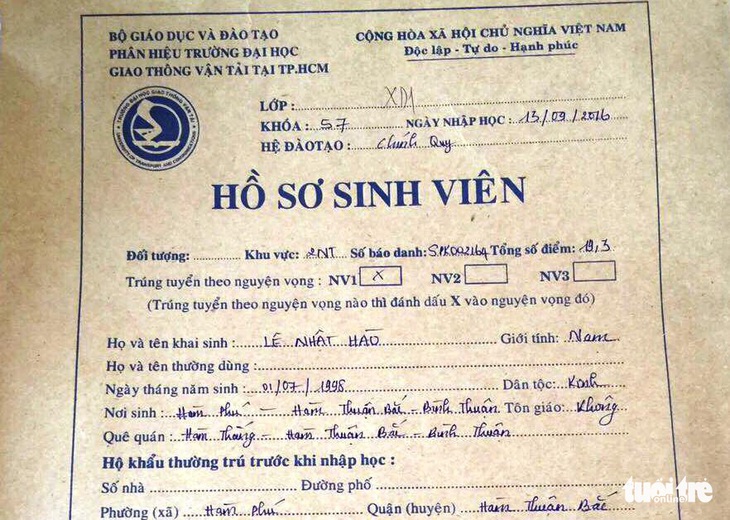 BỘ GIÁO DỤC VÀ ĐÀO TẠO
PHÂN HIỆU TRƯỜNG ĐẠI HỌC
GIAO THÔNG VẬN TẢI TẠI TP.HCM
CỘNG HÒA XÃ HỘI CHỦ NGHĨA VIỆT NAM
Độc lập - Tự do - Hạnh phúc
TRƯỜNG ĐẠI HỌC GIAO THÔNG VẬN TẢI
UNIVERSITY OF TRANSPORT AND COMMUNICATIONS
LỚP : XD1
KHÓA : 57 NGÀY NHẬP HỌC : 13/09/2016
HỆ ĐÀO TẠO : Chính Quy
HỒ SƠ SINH VIÊN
Đối tượng: Khu vực: 2NT Số báo danh: SPK002164 Tổng số điểm: 19,3
Trúng tuyển theo nguyện vọng : NV1 X NV2 NV3
(Trúng tuyển theo nguyện vọng nào thì đánh dấu X vào nguyện vọng đó)
Họ và tên khai sinh : LÊ NHẬT HÀO Giới tính: Nam
Họ và tên thường dùng :
Ngày tháng năm sinh : 01/07/1998 Dân tộc: Kinh
Nơi sinh : Hàm Phú - Hàm Thuận Bắc - Bình Thuận Tôn giáo: Không
Quê quán : Hàm Thắng - Hàm Thuận Bắc - Bình Thuận
Hộ khẩu thường trú trước khi nhập học :
Số nhà Đường phố
Phường (xã) : Hàm Phú Quận (huyện) : Hàm Thuận Bắc
tuổi trẻ
online